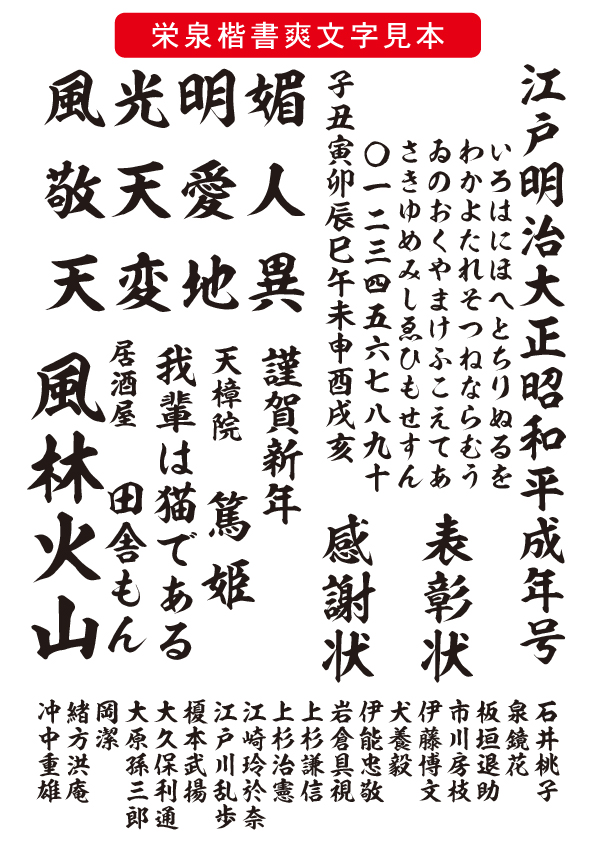 栄泉楷書爽文字見本
江戸明治大正昭和平成年号
いろはにほへとちりぬるを
わかよたれそつねならむう
ゐのおくやまけふこえてあ
さきゆめみしゑひもせすん
〇一二三四五六七八九十
子丑寅卯辰巳午未申酉戌亥
表彰状
感謝状
媚人異
明愛地
光天変
風敬天
謹賀新年
天樟院 篤姫
我輩は猫である
居酒屋 田舎もん
風林火山
石井桃子
泉鏡花
板垣退助
市川房枝
伊藤博文
犬養毅
伊能忠敬
岩倉具視
上杉謙信
上杉治憲
江崎玲於奈
江戸川乱歩
榎本武揚
大久保利通
大原孫三郎
岡潔
緒方洪庵
冲中重雄